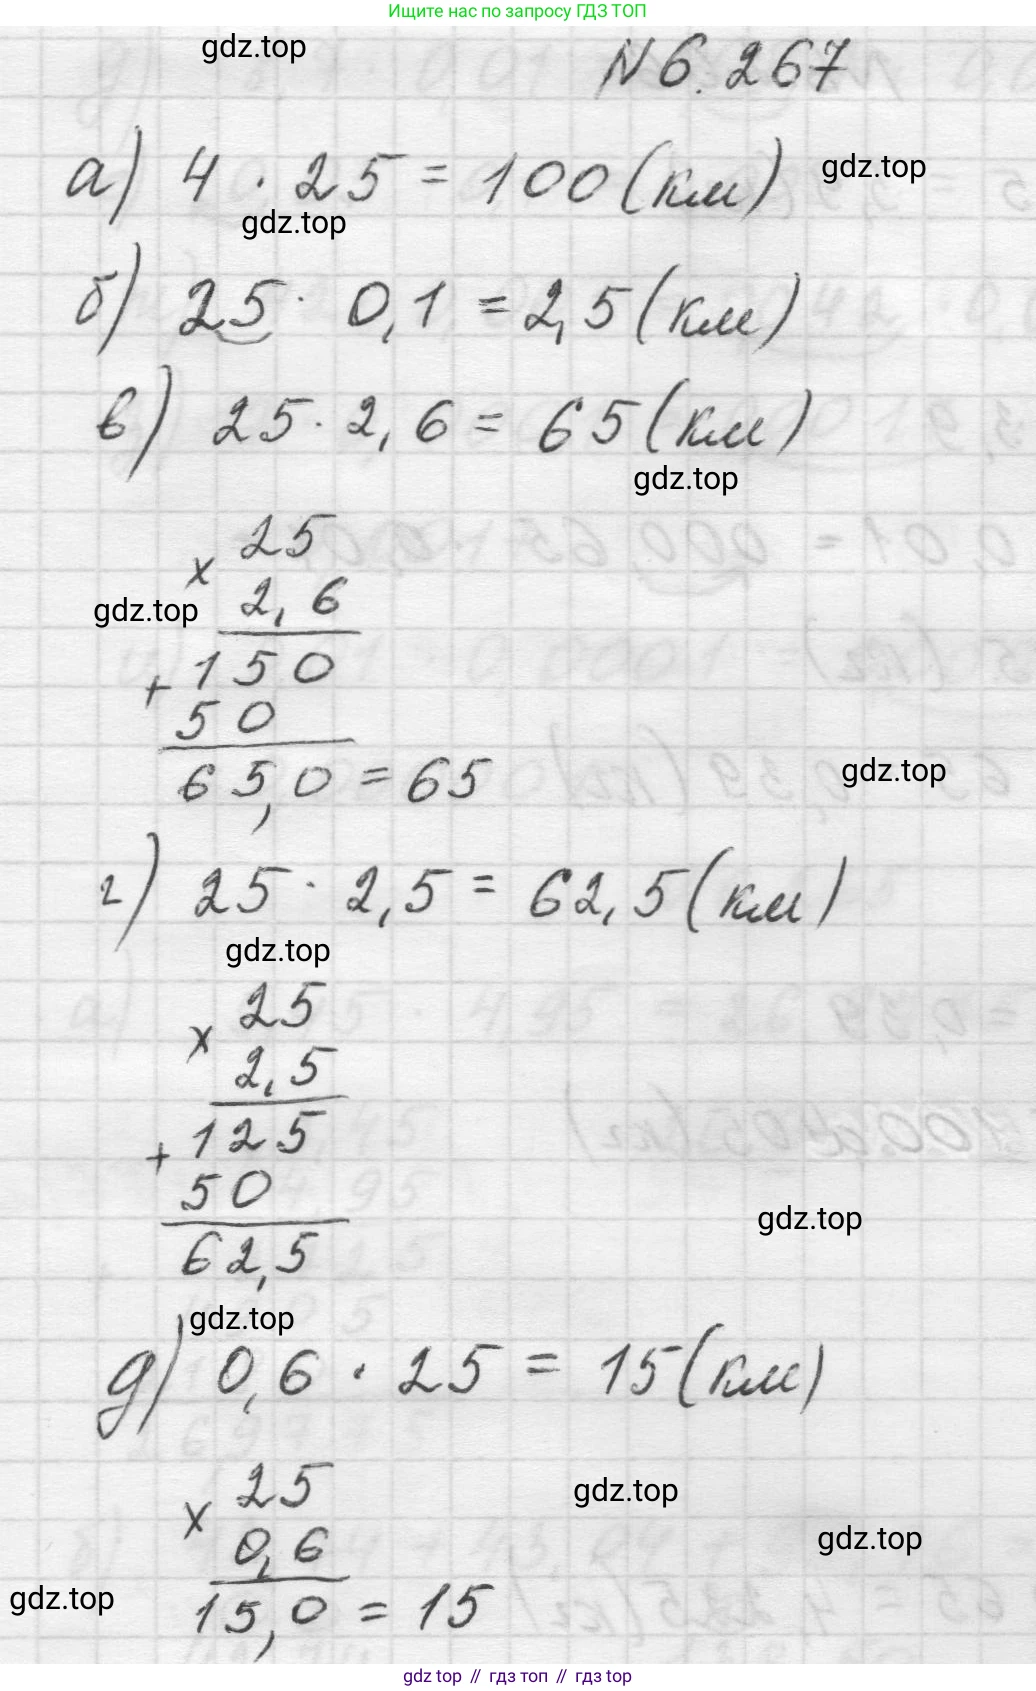 Ищите нас по запросу ГДЗ ТОП
gdz.top
N 6.267
а) 4 · 25 = 100 (км)
gdz.top
gdz.top
б) 25 · 0,1 = 2,5 (км)
в) 25 · 2,6 = 65 (км)
gdz.top
25
×
2,6
gdz.top
150
+
50
65,0 = 65
gdz.top
г) 25 · 2,5 = 62,5 (км)
gdz.top
25
×
2,5
125
+
50
gdz.top
62,5
gdz.top
д) 0,6 · 25 = 15 (км)
25
gdz.top
×
0,6
gdz.top
gdz.top
15,0 = 15
gdz top // гдз топ // gdz top